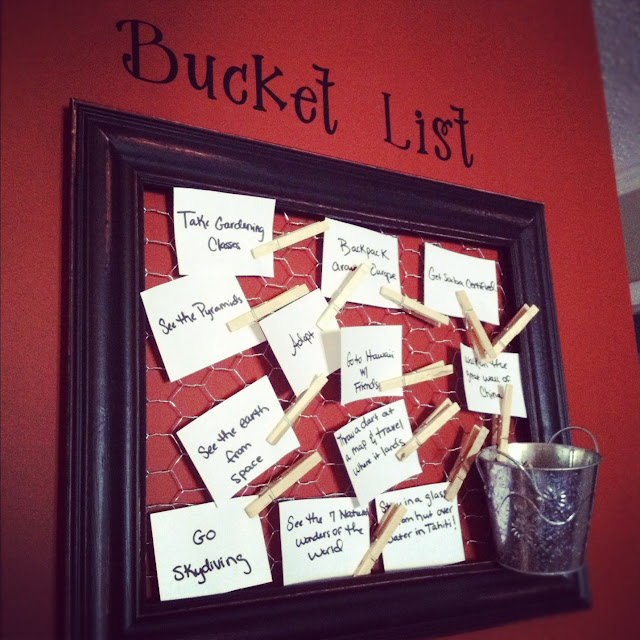 Bucket List
Take Gardening
Classes
Backpack
around Europe
Get Scuba Certified
See the Pyramids
Adopt
Go to Hawaii
w/
Friends
the
Great Wall of
China
See the earth
from
space
Throw a dart at
a map & travel
where it lands
Go
Skydiving
See the 7 Natural
Wonders of the
World
Stay in a glass
hut over
water in Tahiti!